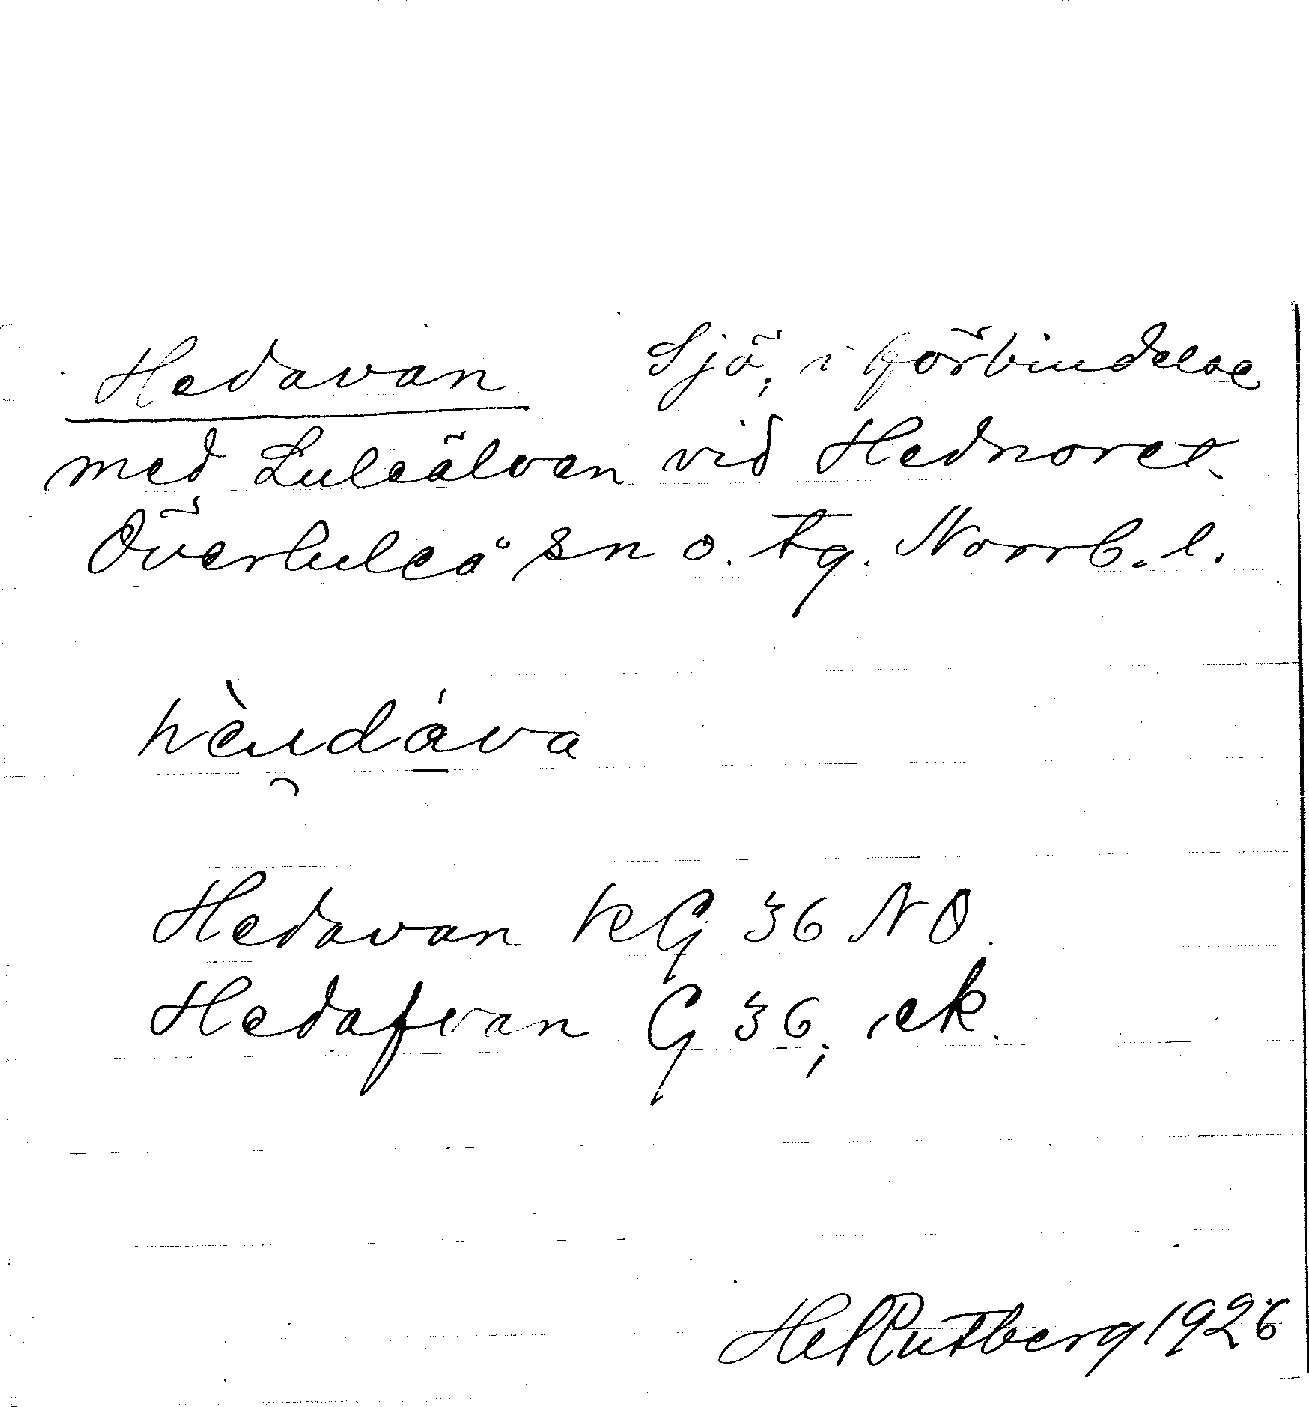 Hedavan Sjö, i förbindelse
med Luleälven vid Hednoret.
Överluleå sn o. tg. Norrb. l.
Hedavan KG 36 NO.
Hedafvan G 36, ek.
Hel Rutberg 1926